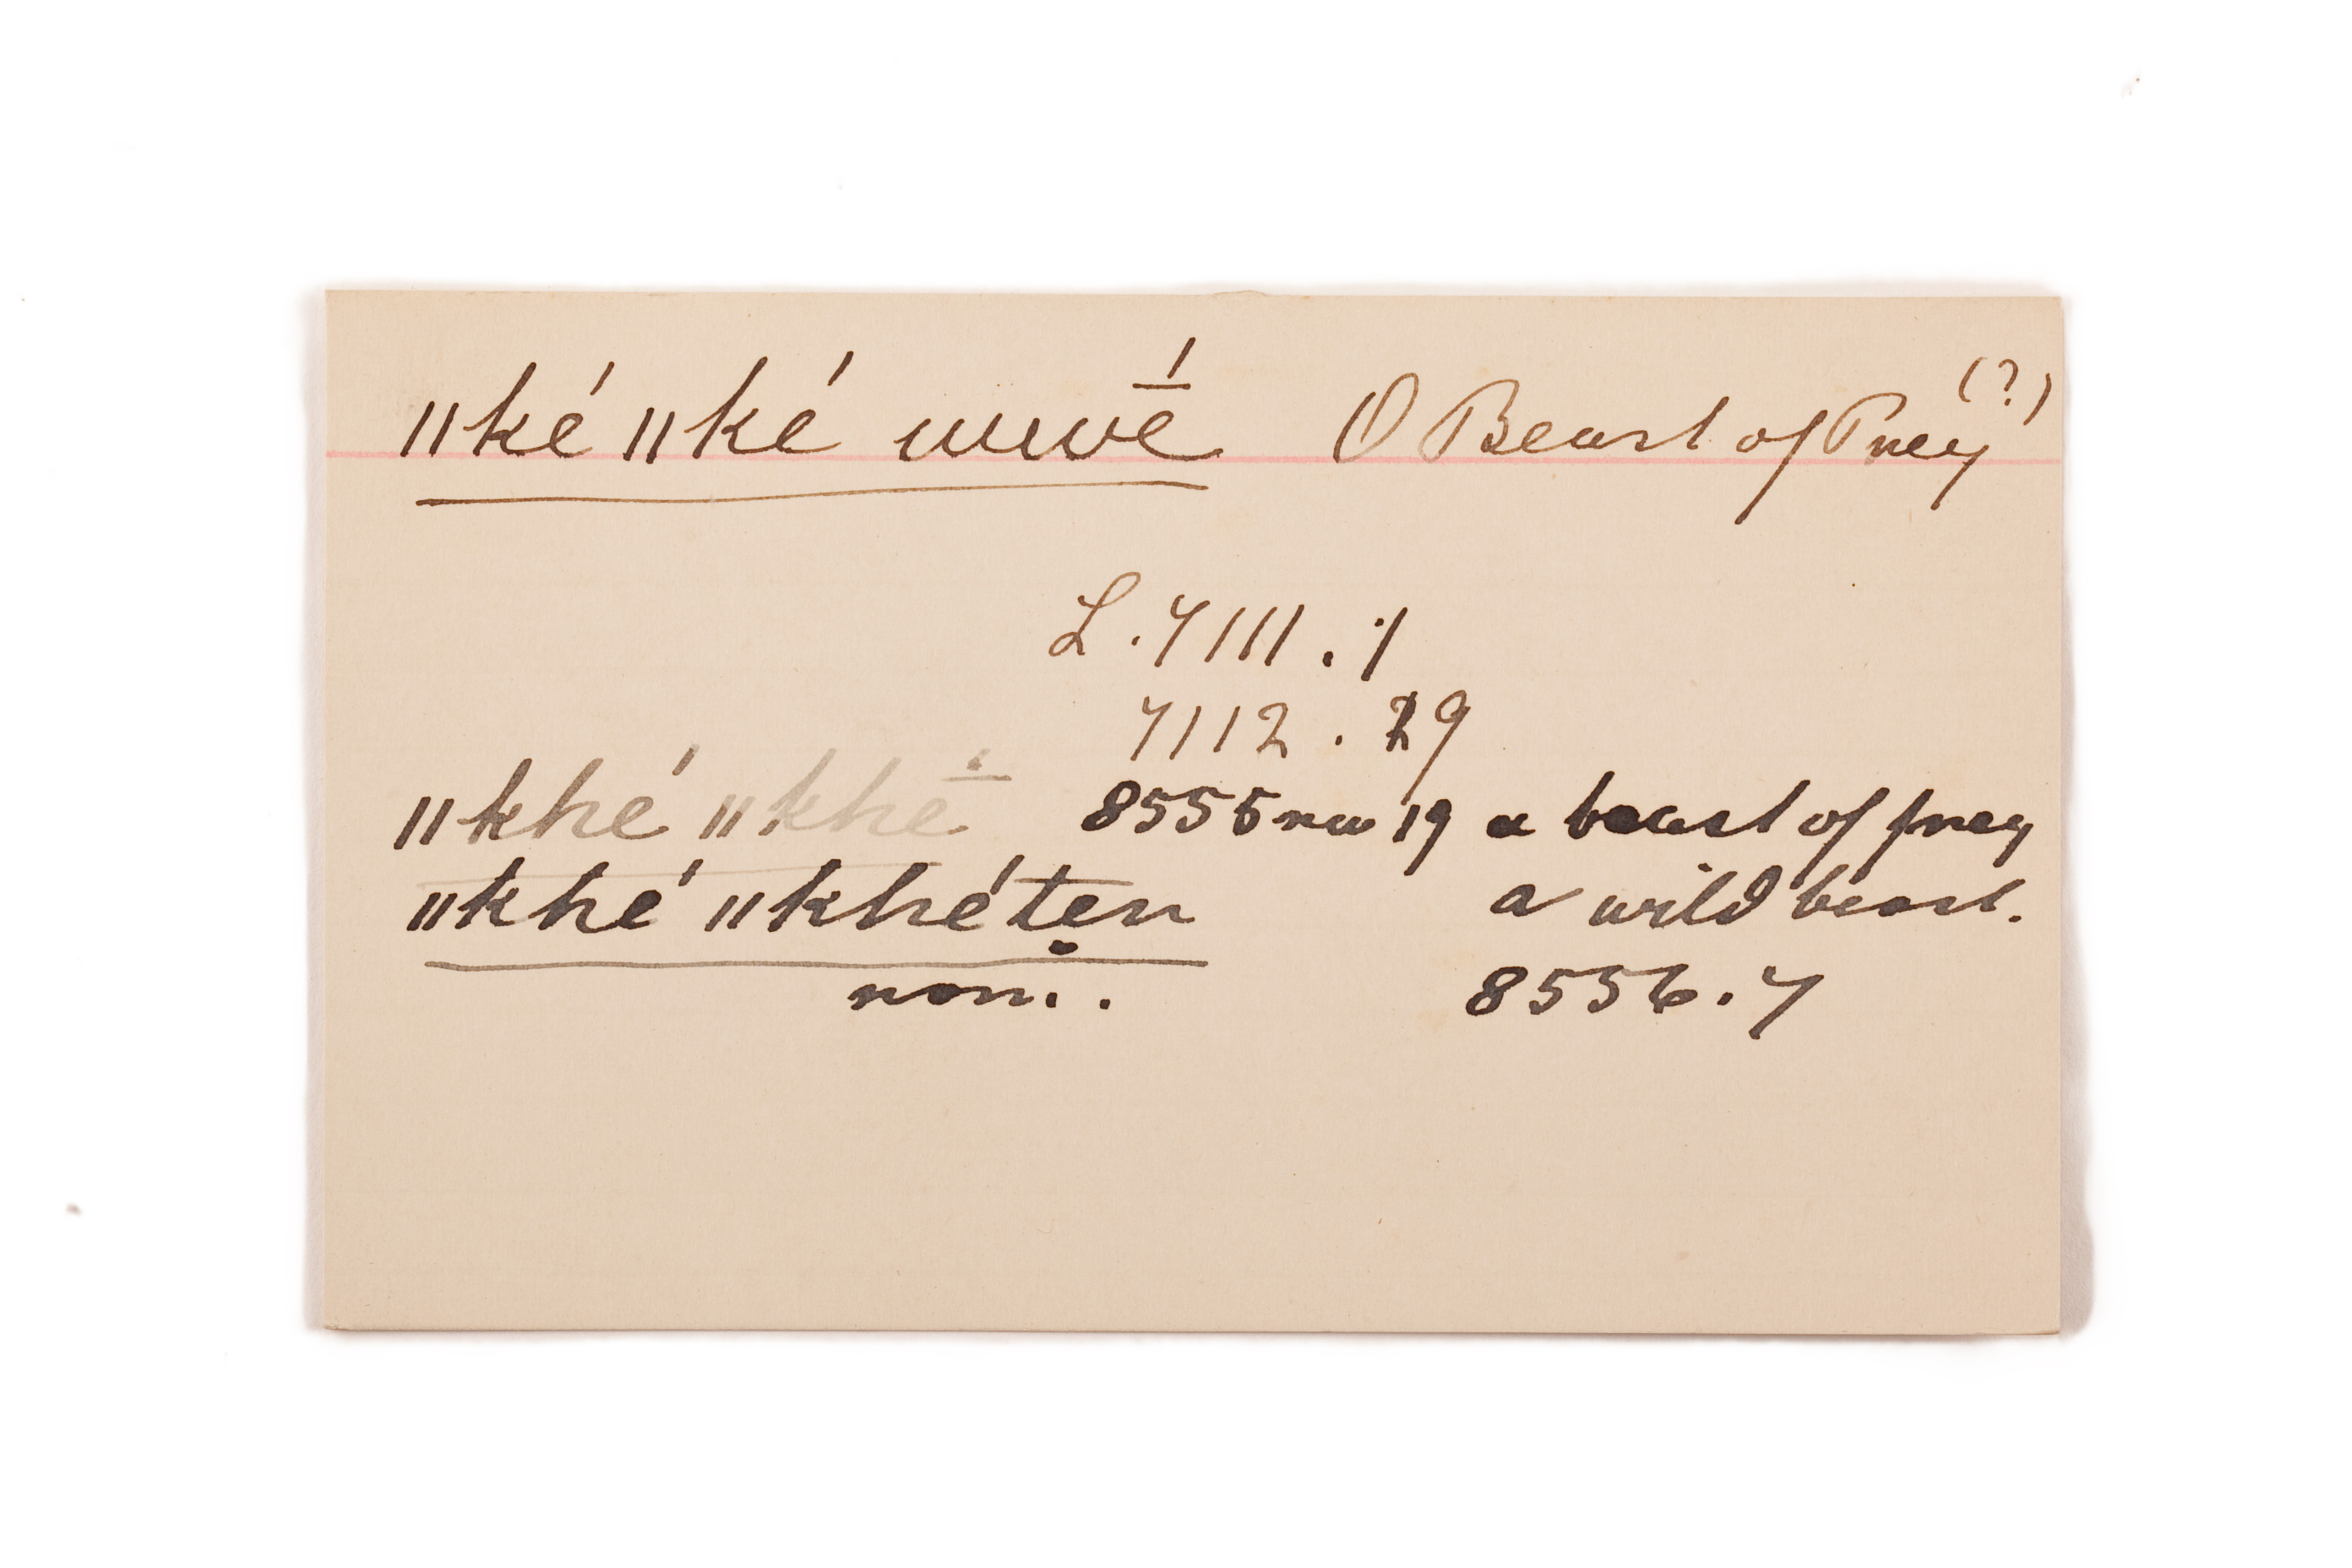 ǁké ǁké wwé̄ O Beast of Prey (?)
L. 7111 . 1
7112 . 29
ǁkhé ǁkhé̄ 8555 rev 19 a beast of prey
ǁkhé ǁkhéten a wild beast.
nom. . 8556.7